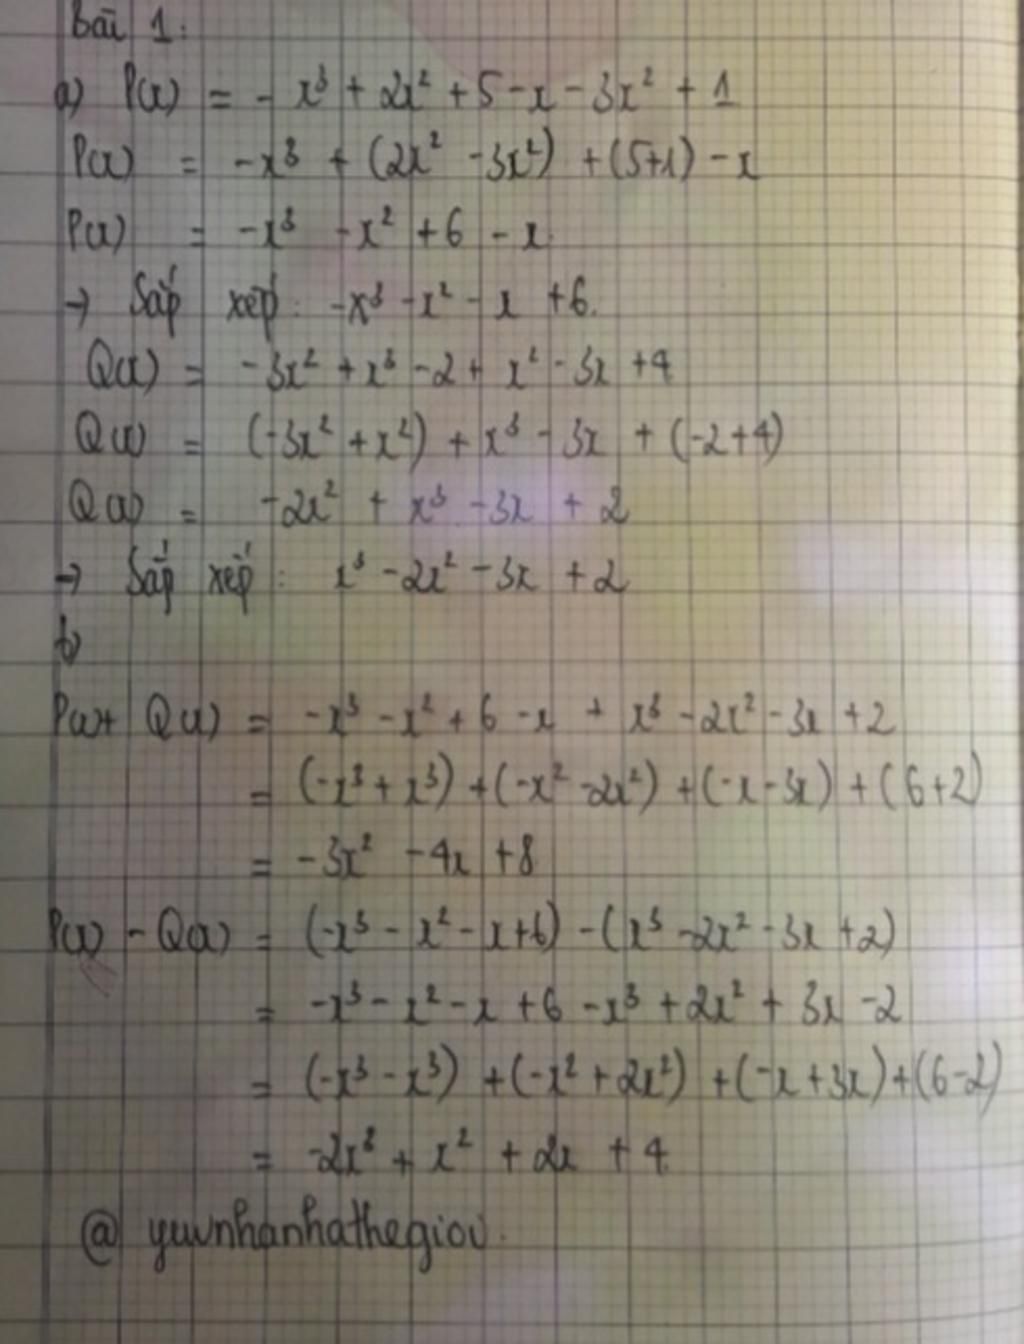 Bài 1:
a) P(x) = - x³ + 2x² + 5 - x - 3x² + 1
P(x) = -x³ + (2x² - 3x²) + (5+1) - x
P(x) = -x³ - x² + 6 - x
→ Sắp xếp: -x³ - x² - x + 6.
Q(x) = -3x² + x³ - 2 + x² - 3x + 4
Q(x) = (-3x² + x²) + x³ - 3x + (-2+4)
Q(x) = -2x² + x³ - 3x + 2
→ Sắp xếp: x³ - 2x² - 3x + 2
b)
P(x)+ Q(x) = -x³ - x² + 6 - x + x³ - 2x² - 3x + 2
= (-x³ + x³) + (-x² - 2x²) + (-x - 3x) + (6+2)
= -3x² - 4x + 8
P(x) - Q(x) = (-x³ - x² - x + 6) - (x³ - 2x² - 3x + 2)
= -x³ - x² - x + 6 - x³ + 2x² + 3x - 2
= (-x³ - x³) + (-x² + 2x²) + (-x + 3x) + (6-2)
= -2x³ + x² + 2x + 4
@ yuunhanhathegioi.